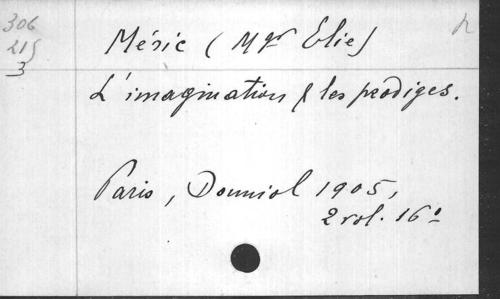 306
215
3
Méric (Mgr Elie)
L'imagination & les prodiges.
Paris, Douniol 1905,
2 vol. 16º